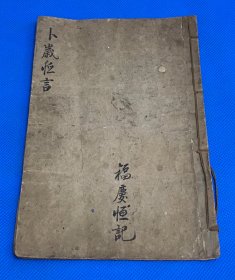 卜歲恒言
福慶恒記